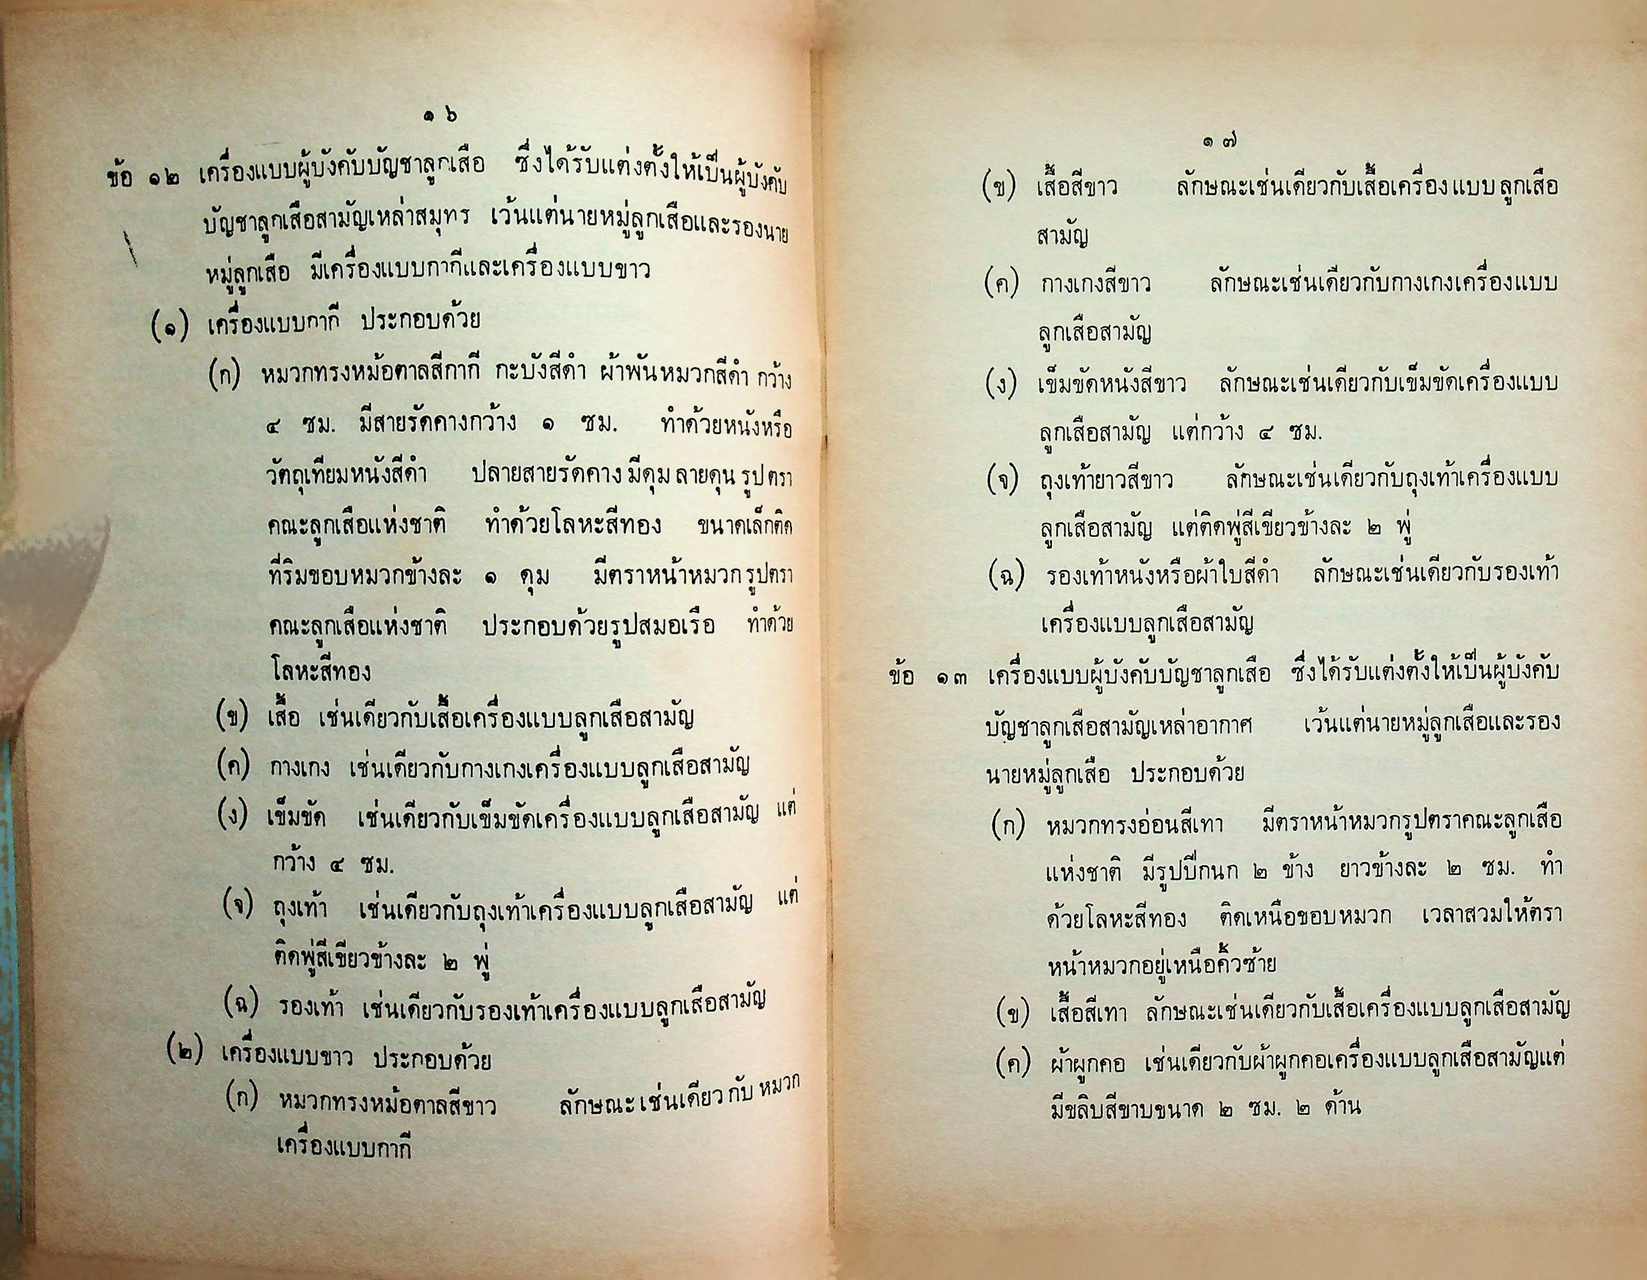 ๑๖
ข้อ ๑๒ เครื่องแบบผู้บังคับบัญชาลูกเสือ ซึ่งได้รับแต่งตั้งให้เป็นผู้บังคับ
บัญชาลูกเสือสามัญเหล่าสมุทร เว้นแต่นายหมู่ลูกเสือและรองนาย
หมู่ลูกเสือ มีเครื่องแบบกากีและเครื่องแบบขาว
(๑) เครื่องแบบกากี ประกอบด้วย
(ก) หมวกทรงหม้อตาลสีกากี กะบังสีดำ ผ้าพันหมวกสีดำ กว้าง
๔ ซม. มีสายรัดคางกว้าง ๑ ซม. ทำด้วยหนังหรือ
วัตถุเทียมหนังสีดำ ปลายสายรัดคางมีดุมลายดุนรูปตรา
คณะลูกเสือแห่งชาติ ทำด้วยโลหะสีทอง ขนาดเล็กติด
ที่ริมขอบหมวกข้างละ ๑ ดุม มีตราหน้าหมวกรูปตรา
คณะลูกเสือแห่งชาติ ประกอบด้วยรูปสมอเรือ ทำด้วย
โลหะสีทอง
(ข) เสื้อ เช่นเดียวกับเสื้อเครื่องแบบลูกเสือสามัญ
(ค) กางเกง เช่นเดียวกับกางเกงเครื่องแบบลูกเสือสามัญ
(ง) เข็มขัด เช่นเดียวกับเข็มขัดเครื่องแบบลูกเสือสามัญ แต่
กว้าง ๔ ซม.
(จ) ถุงเท้า เช่นเดียวกับถุงเท้าเครื่องแบบลูกเสือสามัญ แต่
ติดพู่สีเขียวข้างละ ๒ พู่
(ฉ) รองเท้า เช่นเดียวกับรองเท้าเครื่องแบบลูกเสือสามัญ
(๒) เครื่องแบบขาว ประกอบด้วย
(ก) หมวกทรงหม้อตาลสีขาว ลักษณะเช่นเดียวกับหมวก
เครื่องแบบกากี
๑๗
(ข) เสื้อสีขาว ลักษณะเช่นเดียวกับเสื้อเครื่องแบบลูกเสือ
สามัญ
(ค) กางเกงสีขาว ลักษณะเช่นเดียวกับกางเกงเครื่องแบบ
ลูกเสือสามัญ
(ง) เข็มขัดหนังสีขาว ลักษณะเช่นเดียวกับเข็มขัดเครื่องแบบ
ลูกเสือสามัญ แต่กว้าง ๔ ซม.
(จ) ถุงเท้ายาวสีขาว ลักษณะเช่นเดียวกับถุงเท้าเครื่องแบบ
ลูกเสือสามัญ แต่ติดพู่สีเขียวข้างละ ๒ พู่
(ฉ) รองเท้าหนังหรือผ้าใบสีดำ ลักษณะเช่นเดียวกับรองเท้า
เครื่องแบบลูกเสือสามัญ
ข้อ ๑๓ เครื่องแบบผู้บังคับบัญชาลูกเสือ ซึ่งได้รับแต่งตั้งให้เป็นผู้บังคับ
บัญชาลูกเสือสามัญเหล่าอากาศ เว้นแต่นายหมู่ลูกเสือและรอง
นายหมู่ลูกเสือ ประกอบด้วย
(ก) หมวกทรงอ่อนสีเทา มีตราหน้าหมวกรูปตราคณะลูกเสือ
แห่งชาติ มีรูปปีกนก ๒ ข้าง ยาวข้างละ ๒ ซม. ทำ
ด้วยโลหะสีทอง ติดเหนือขอบหมวก เวลาสวมให้ตรา
หน้าหมวกอยู่เหนือคิ้วซ้าย
(ข) เสื้อสีเทา ลักษณะเช่นเดียวกับเสื้อเครื่องแบบลูกเสือสามัญ
(ค) ผ้าผูกคอ เช่นเดียวกับผ้าผูกคอเครื่องแบบลูกเสือสามัญแต่
มีขลิบสีขาบขนาด ๒ ซม. ๒ ด้าน